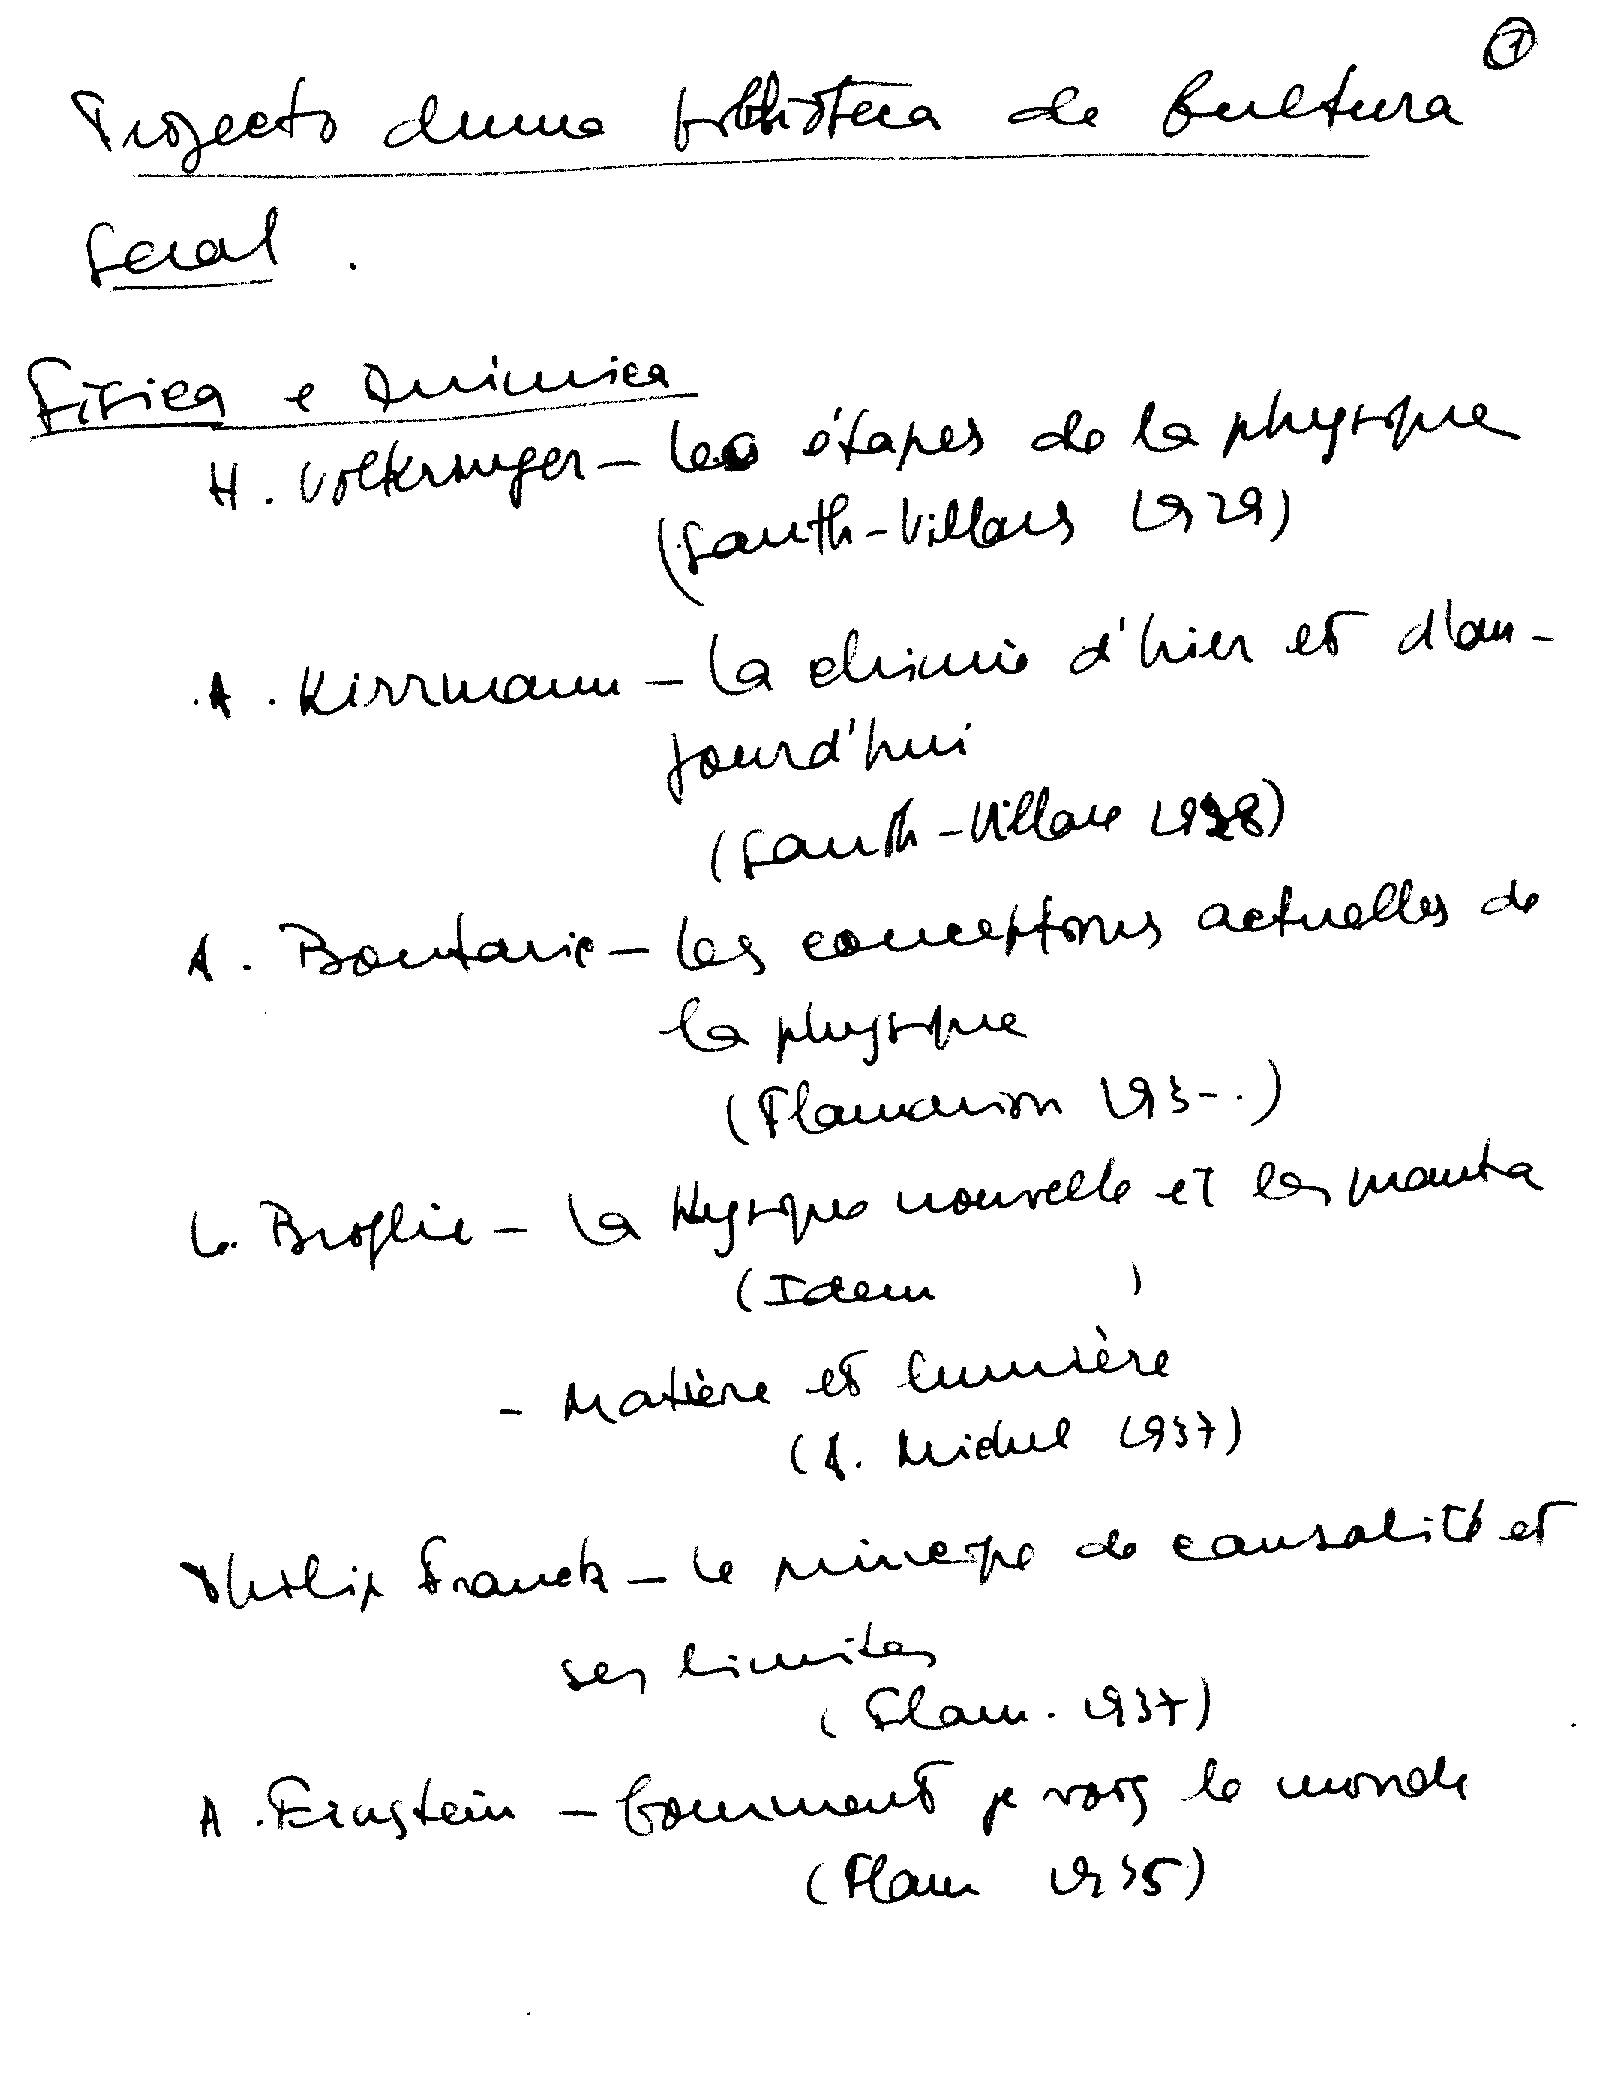 1
Projecto duma biblioteca de Cultura
Geral.
Física e Química
H. Volkringer – Les étapes de la physique
(Gauth-Villars 1929)
A. Kirrmann – La chimie d'hier et d'au-
jourd'hui
(Gauth-Villars 1928)
A. Boutaric – Les conceptions actuelles de
la physique
(Flamarion 193-.)
L. Broglie – La Physique nouvelle et les quanta
(Idem )
- Matière et lumière
(A. Michel 1937)
Philip Franck – Le principe de causalité et
ses limites
(Flam. 1937)
A. Einstein – Comment je vois le monde
(Flam 1935)